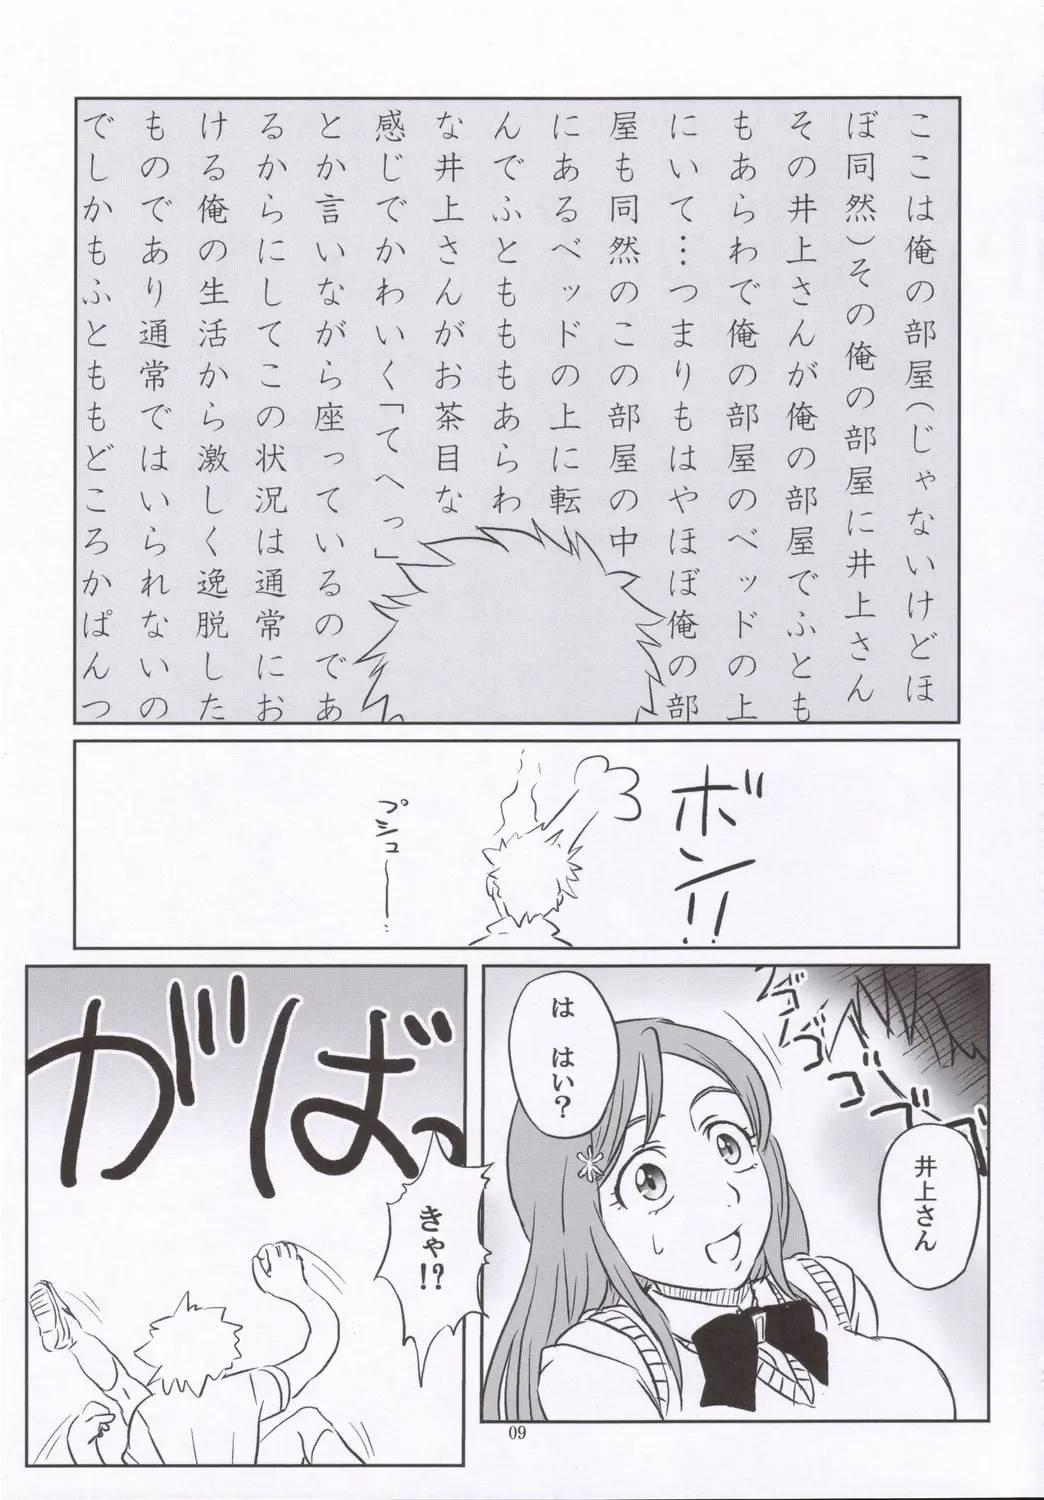 ここは俺の部屋(じゃないけどほ
ぼ同然)その俺の部屋に井上さん
その井上さんが俺の部屋でふとも
もあらわで俺の部屋のベッドの上
にいて…つまりもはやほぼ俺の部
屋も同然のこの部屋の中
にあるベッドの上に転
んでふとももあらわ
な井上さんがお茶目な
感じでかわいく「てへっ」
とか言いながら座っているのであ
るからにしてこの状況は通常にお
ける俺の生活から激しく逸脱した
ものであり通常ではいられないの
でしかもふとももどころかぱんつ
ボン!!
プシュー…
ズズズズズ
井上さん
は はい?
がばっ
きゃ!?
09